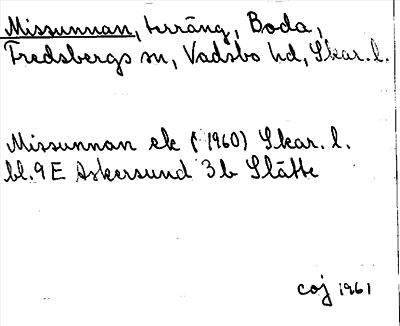 Missunnan, terräng, Boda,
Fredsbergs sn, Vadsbo hd, Skar. l.
Missunnan ek (1960) Skar. l.
bl. 9 E Askersund 3b Slätte
coj 1961